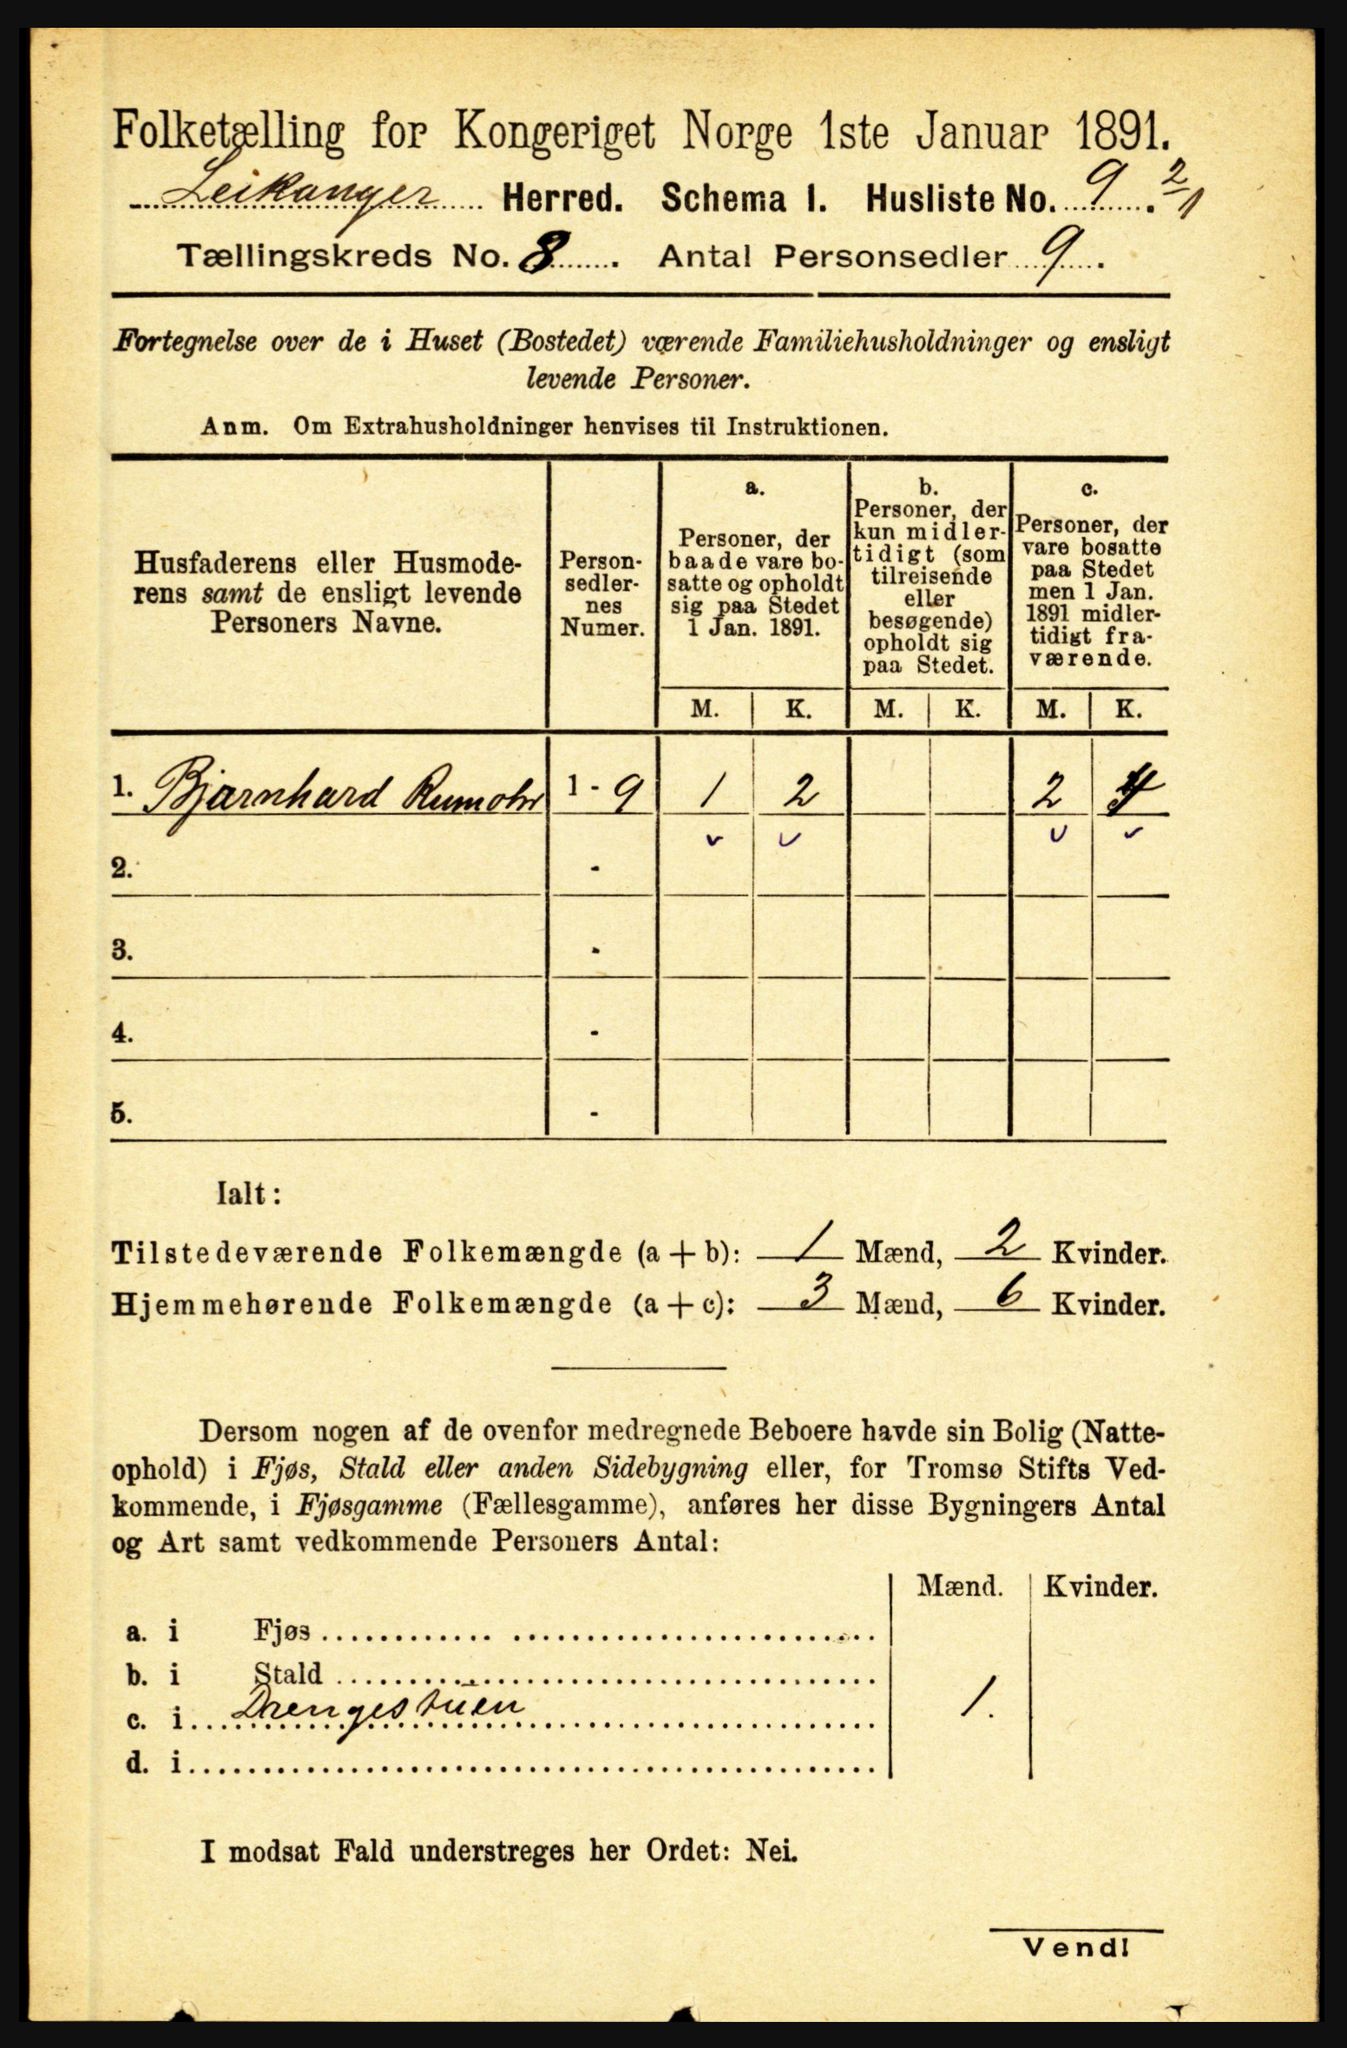 Folketælling for Kongeriget Norge 1ste Januar 1891.
Leikanger Herred. Schema I. Husliste No. 9. 2/1
Tællingskreds No. 8. Antal Personsedler 9.
Fortegnelse over de i Huset (Bostedet) værende Familiehusholdninger og ensligt
levende Personer.
Anm. Om Extrahusholdninger henvises til Instruktionen.
Husfaderens eller Husmode-
rens samt de ensligt levende
Personers Navne.
Person-
sedler-
nes
Numer.
a.
Personer, der
baade vare bo-
satte og opholdt
sig paa Stedet
1 Jan. 1891.
b.
Personer, der
kun midler-
tidigt (som
tilreisende
eller
besøgende)
opholdt sig
paa Stedet.
c.
Personer, der
vare bosatte
paa Stedet
men 1 Jan.
1891 midler-
tidigt fra-
værende.
M. K. M. K. M. K.
1. Bjarnhard Rumohr 1 - 9 1 2 2 4
2. -
3. -
4. -
5. -
Ialt:
Tilstedeværende Folkemængde (a + b): 1 Mænd, 2 Kvinder.
Hjemmehørende Folkemængde (a + c): 3 Mænd, 6 Kvinder.
Dersom nogen af de ovenfor medregnede Beboere havde sin Bolig (Natte-
ophold) i Fjøs, Stald eller anden Sidebygning eller, for Tromsø Stifts Ved-
kommende, i Fjøsgamme (Fællesgamme), anføres her disse Bygningers Antal
og Art samt vedkommende Personers Antal:
Mænd. Kvinder.
a. i Fjøs
b. i Stald
c. i Drengestuen 1.
d. i
I modsat Fald understreges her Ordet: Nei.
Vend!